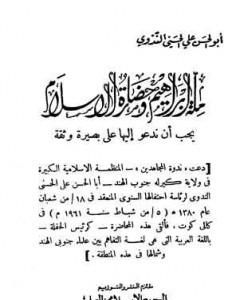 أبو الحسن علي الحسني الندوي
ملة إبراهيم وحضارة الإسلام
يجب أن ندعو إليها على بصيرة وثقة
[ دعت « ندوة المجاهدين » المنظمة الاسلامية الكبيرة
في ولاية كيرله جنوب الهند - أبا الحسن علي الحسني
الندوي لرئاسة احتفالها السنوي المنعقد في ١٨ / من شعبان
عام ١٣٨٠ ( ٥ / من شباط سنة ١٩٦١ م ) في
كلي كوت ، فألقى هذه المحاضرة - كرئيس الحفلة -
باللغة العربية التي هي لغة التفاهم بين علماء جنوبي الهند
وشمالها في هذه المنطقة . ]
ملتزم النشر والتوزيع
المجمع الإسلامي العلمي